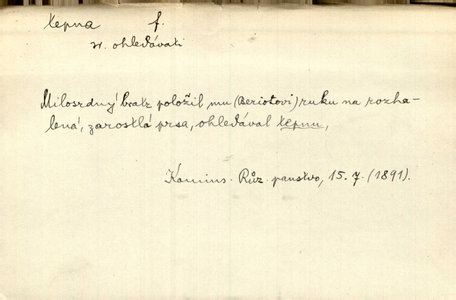 tepna f.
v. ohledávati
Milosrdný bratr položil mu (Beriotovi) ruku na rozha-
lená, zarostlá prsa, ohledával tepnu,
Kamins. Růz. panstvo, 15. 7. (1891).